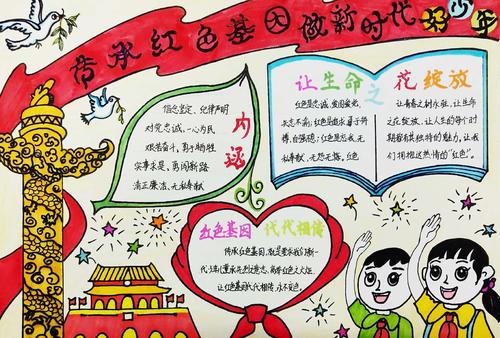 传承红色基因做新时代好少年
信念坚定、纪律严明
对党忠诚、一心为民
艰苦奋斗、勇于牺牲
实事求是、勇闯新路
清正廉洁、无私奉献
内涵
让生命之花绽放
红色是忠诚、爱国爱党、
矢志不渝;红色是
博、自强不息;红色是忘我、无
私奉献、无怨无悔,红色
让青春之树永驻,让生命
之花绽放、让人生的每个时
期都有其独特的魅力,让我
们拥抱这热情的“红色”。
红色基因 代代相传
传承红色基因,就是要求我们新一
代
让红色基因代代相传、永不变色。